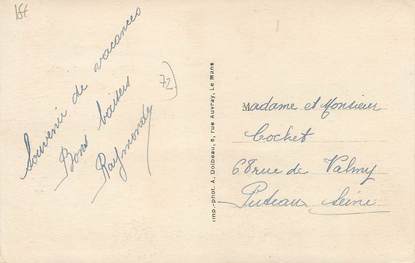 Souvenir de vacances
Bons baisers
Raymonde
72
Imp.-phot. A. Dolbeau, 8, rue Auvray, Le Mans
Madame et Monsieur
Cochet
68 rue de Valmy
Puteau Seine